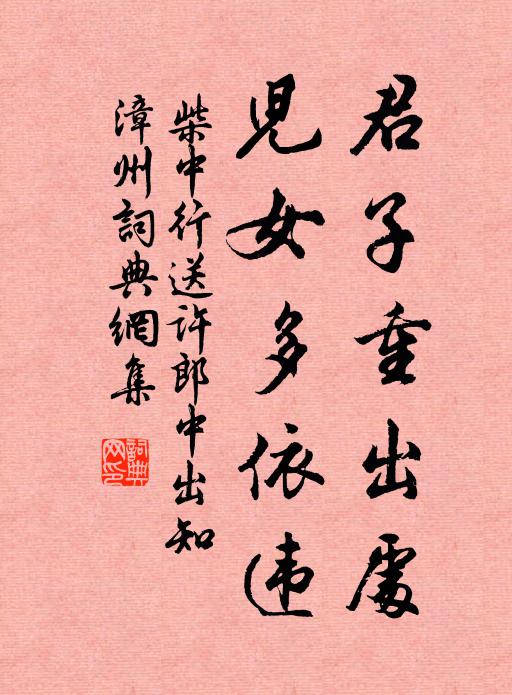 君子重出處
兒女多依违
柴中行送许郎中出知
漳州詞典網集
詞典網印